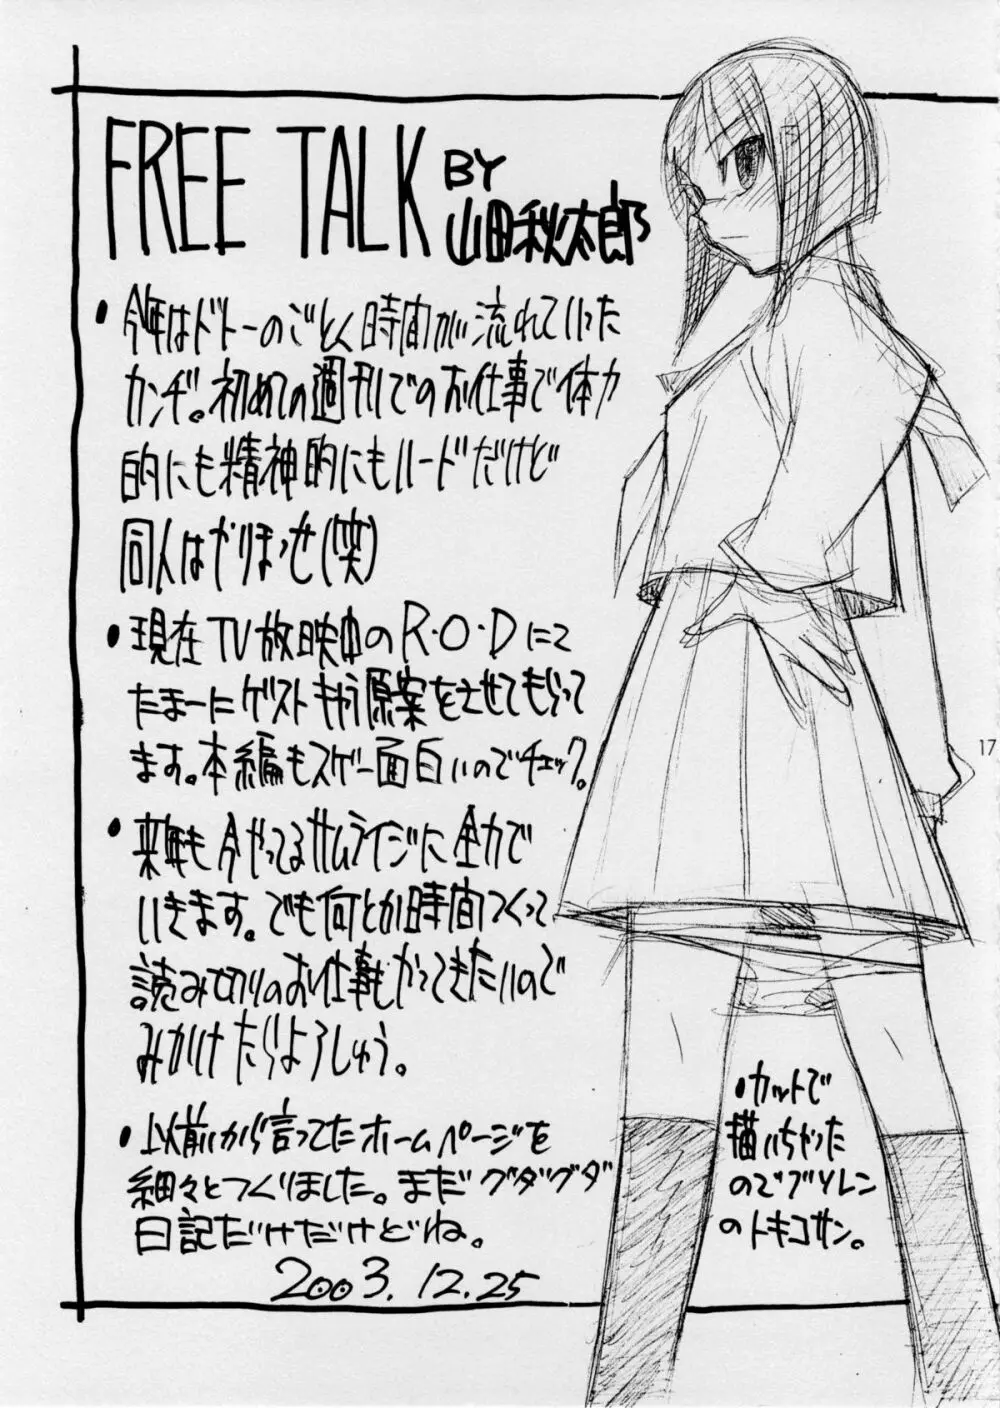 FREE TALK BY
山田秋太郎
・今年はドトーのごとく時間が流れていった
カンヂ。初めての週刊でのお仕事で体力
的にも精神的にもハードだけど
同人はやりまっせ(笑)
・現在TV放映中のR・O・Dにて
たまーにゲストキャラ原案をさせてもらって
ます。本編もスゲー面白いのでチェック。
・来年も今やってるサムライジに全力で
いきます。でも何とか時間つくって
読み切りのお仕事もやってきたいので
みかけたらよろしゅう。
・以前から言ってたホームページを
細々とつくりました。まだグダグダ
日記だけだけどね。
2003.12.25
・カットで
描いちゃった
のでブソレン
のトキコサン。
17